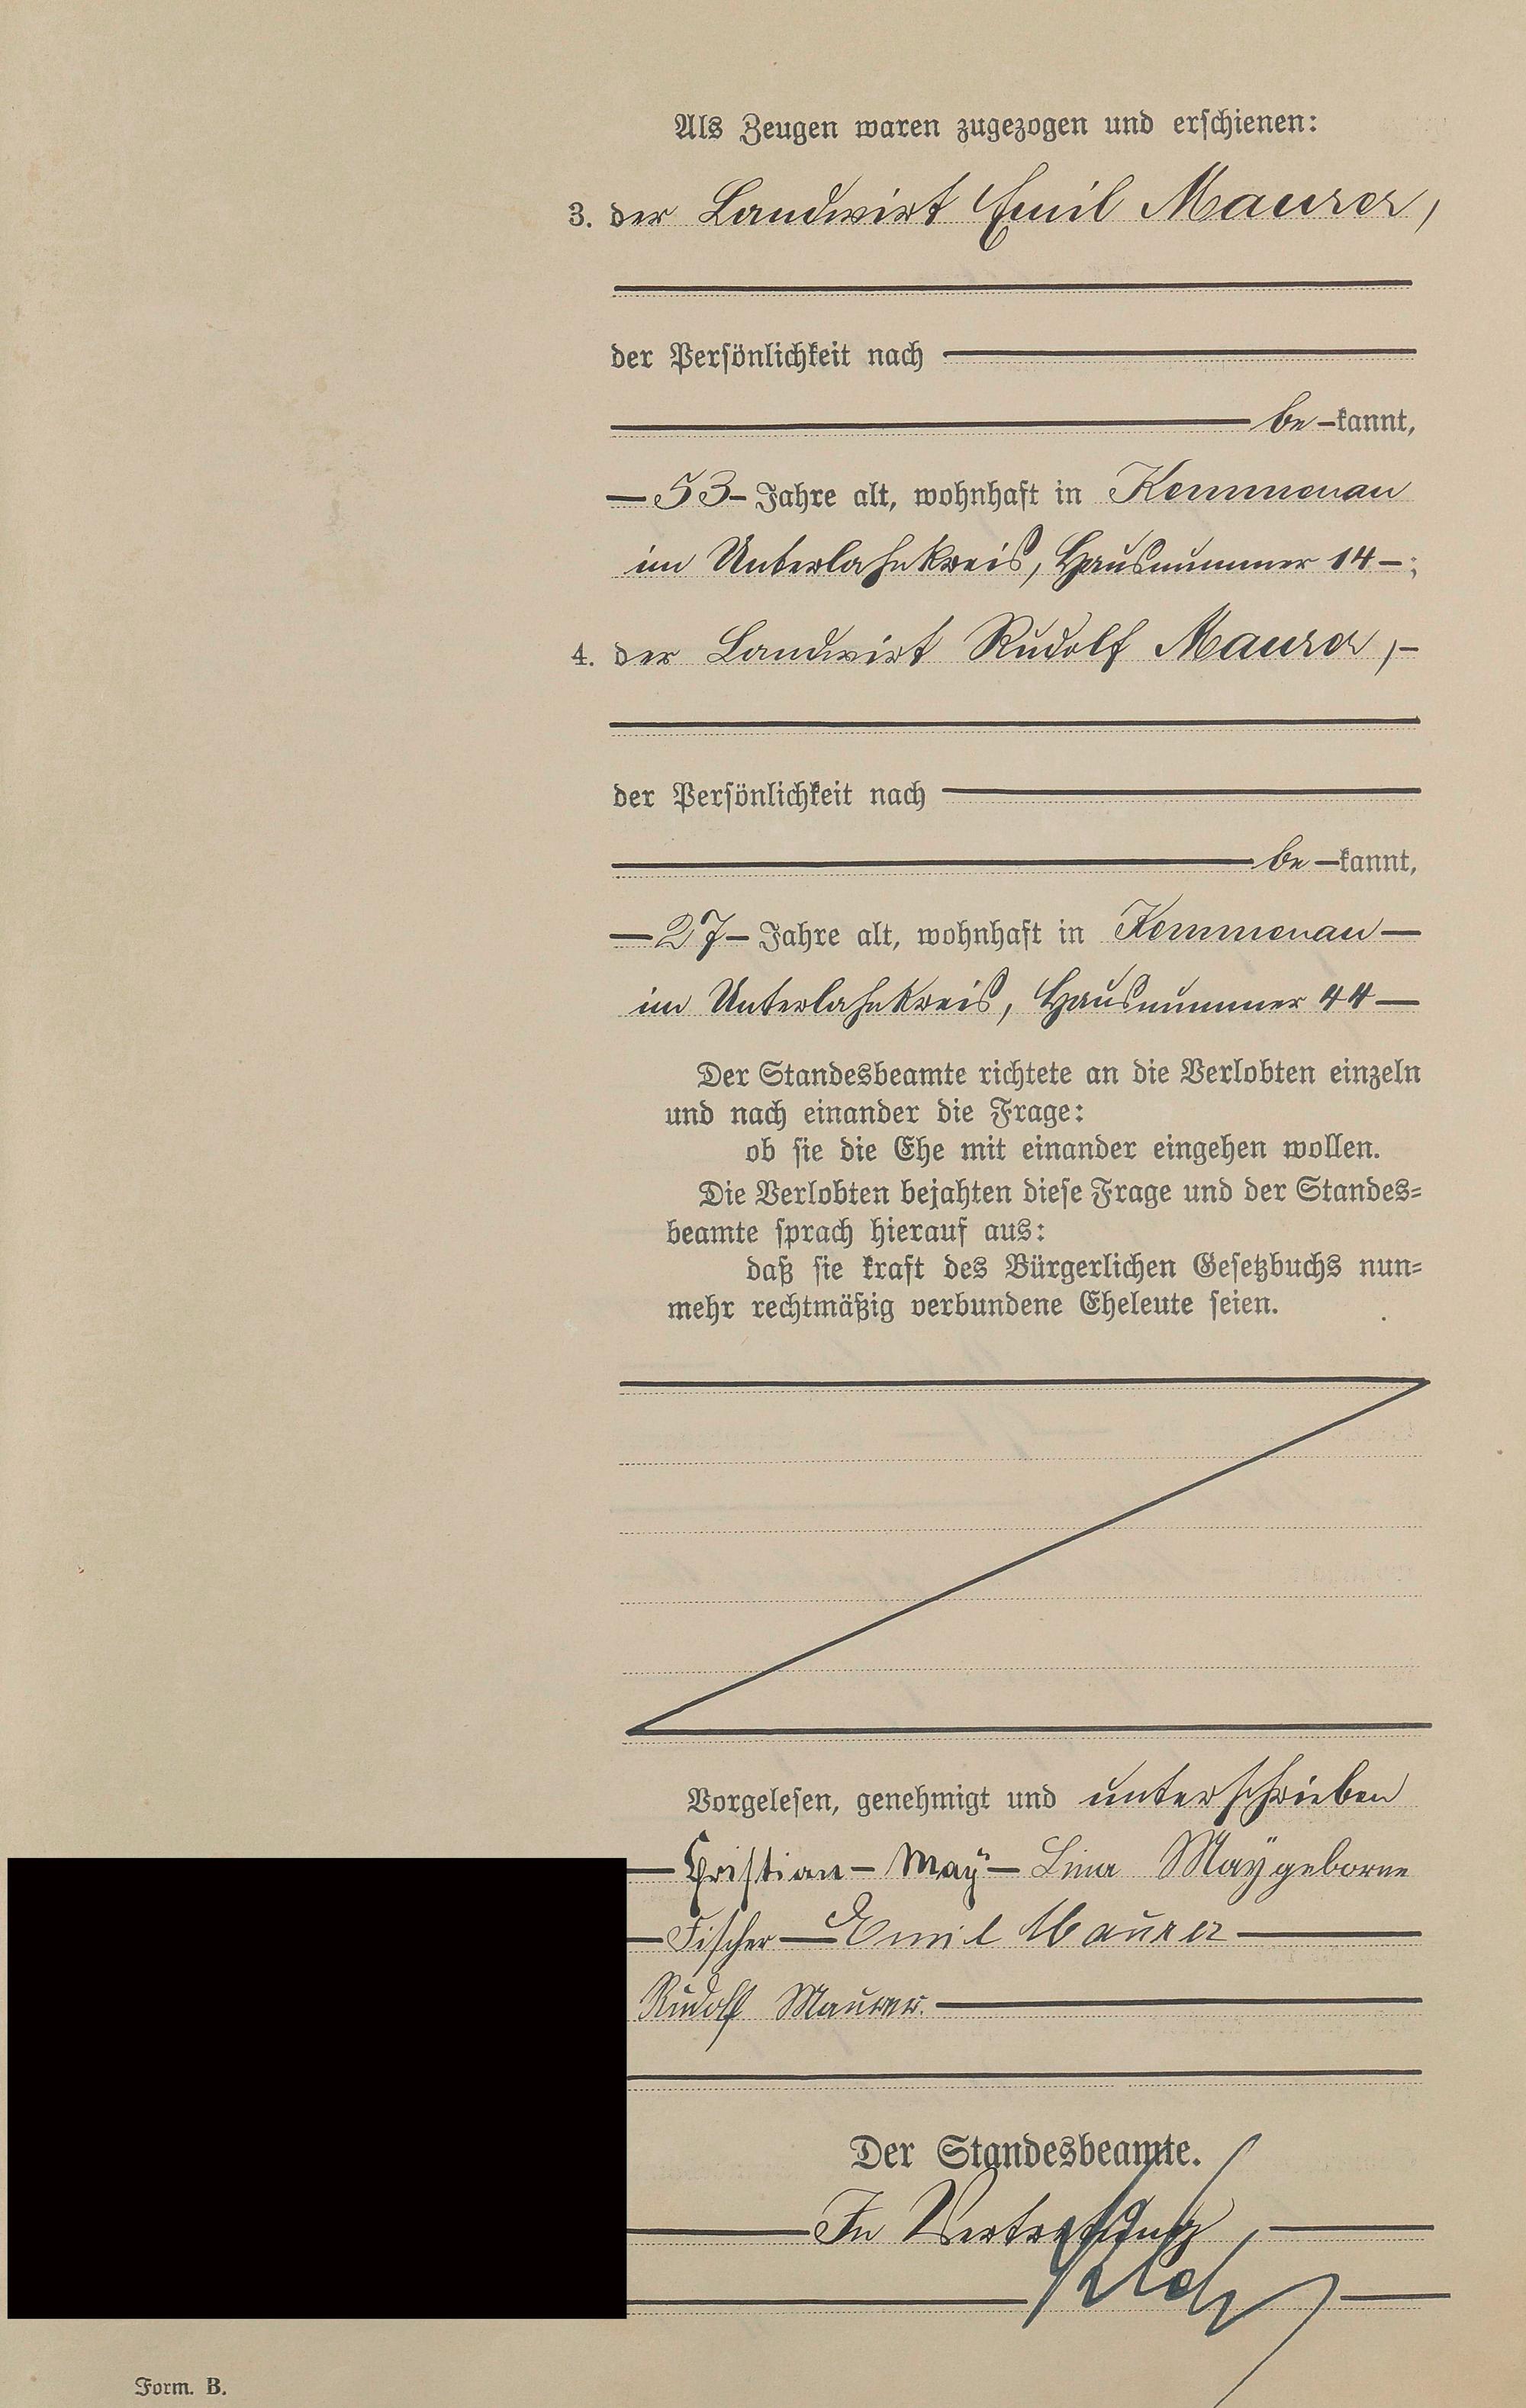 Als Zeugen waren zugezogen und erschienen:
3. der Landwirt Emil Maurer,
der Persönlichkeit nach
be-kannt,
-53- Jahre alt, wohnhaft in Kemmenau
im Unterlahnkreis, Hausnummer 14-;
4. der Landwirt Rudolf Maurer,-
der Persönlichkeit nach
be-kannt,
-27- Jahre alt, wohnhaft in Kemmenau-
im Unterlahnkreis, Hausnummer 44-
Der Standesbeamte richtete an die Verlobten einzeln
und nach einander die Frage:
ob sie die Ehe mit einander eingehen wollen.
Die Verlobten bejahten diese Frage und der Standes-
beamte sprach hierauf aus:
daß sie kraft des Bürgerlichen Gesetzbuchs nun-
mehr rechtmäßig verbundene Eheleute seien.
Vorgelesen, genehmigt und unterschrieben
-Christian-Maÿ-Lina Maÿ geborne
-Fischer-Emil Maurer-
Rudolf Maurer.-
Der Standesbeamte.
In Vertretung
Form. B.